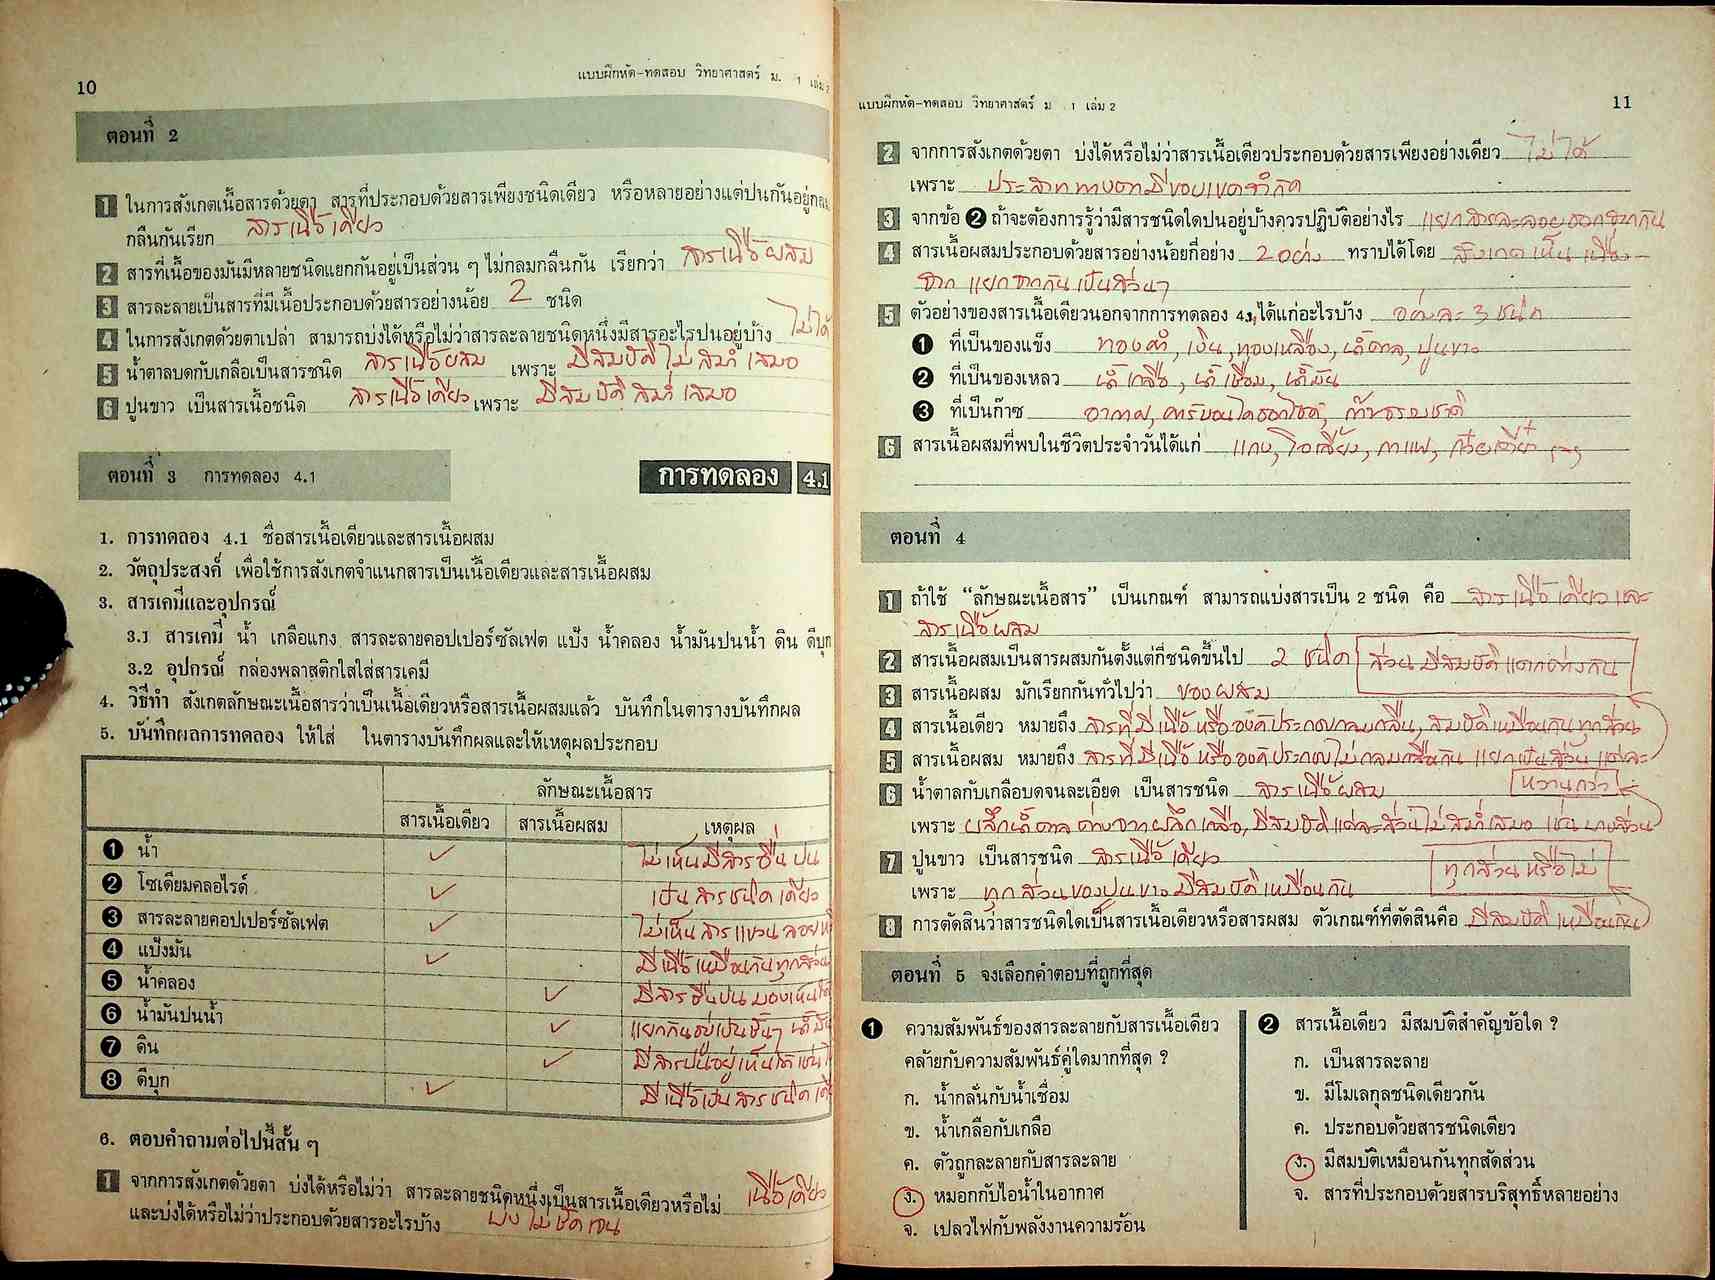 10
แบบฝึกหัด-ทดสอบ วิทยาศาสตร์ ม. 1 เล่ม 2
ตอนที่ 2
1 ในการสังเกตเนื้อสารด้วยตา สารที่ประกอบด้วยสารเพียงชนิดเดียว หรือหลายอย่างแต่ปนกันอยู่กลม
กลืนกันเรียก สารเนื้อเดียว
2 สารที่เนื้อของมันมีหลายชนิดแยกกันอยู่เป็นส่วน ๆ ไม่กลมกลืนกัน เรียกว่า สารเนื้อผสม
3 สารละลายเป็นสารที่มีเนื้อประกอบด้วยสารอย่างน้อย 2 ชนิด
4 ในการสังเกตด้วยตาเปล่า สามารถบ่งได้หรือไม่ว่าสารละลายชนิดหนึ่งมีสารอะไรปนอยู่บ้าง ไม่ได้
5 น้ำตาลบดกับเกลือเป็นสารชนิด สารเนื้อผสม เพราะ มีสมบัติไม่สม่ำเสมอ
6 ปูนขาว เป็นสารเนื้อชนิด สารเนื้อเดียว เพราะ มีสมบัติสม่ำเสมอ
ตอนที่ 3 การทดลอง 4.1
การทดลอง 4.1
1. การทดลอง 4.1 ชื่อสารเนื้อเดียวและสารเนื้อผสม
2. วัตถุประสงค์ เพื่อใช้การสังเกตจำแนกสารเป็นเนื้อเดียวและสารเนื้อผสม
3. สารเคมีและอุปกรณ์
3.1 สารเคมี น้ำ เกลือแกง สารละลายคอปเปอร์ซัลเฟต แป้ง น้ำคลอง น้ำมันปนน้ำ ดิน ดีบุก
3.2 อุปกรณ์ กล่องพลาสติกใสใส่สารเคมี
4. วิธีทำ สังเกตลักษณะเนื้อสารว่าเป็นเนื้อเดียวหรือสารเนื้อผสมแล้ว บันทึกในตารางบันทึกผล
5. บันทึกผลการทดลอง ให้ใส่ ในตารางบันทึกผลและให้เหตุผลประกอบ
ลักษณะเนื้อสาร
สารเนื้อเดียว สารเนื้อผสม เหตุผล
1 น้ำ ✓ ไม่เห็นมีสารอื่นปน
2 โซเดียมคลอไรด์ ✓ เป็นสารชนิดเดียว
3 สารละลายคอปเปอร์ซัลเฟต ✓ ไม่เห็นสารแขวนลอย
4 แป้งมัน ✓ มีเนื้อเหมือนกันทุกส่วน
5 น้ำคลอง ✓ มีสารอื่นปนมองเห็น
6 น้ำมันปนน้ำ ✓ แยกกันอยู่เป็นชั้นๆ
7 ดิน ✓ มีสารปนอยู่เห็นได้เช่น
8 ดีบุก ✓ มีเนื้อเป็นสารชนิด
6. ตอบคำถามต่อไปนี้สั้น ๆ
1 จากการสังเกตด้วยตา บ่งได้หรือไม่ว่า สารละลายชนิดหนึ่งเป็นสารเนื้อเดียวหรือไม่ เนื้อเดียว
และบ่งได้หรือไม่ว่าประกอบด้วยสารอะไรบ้าง บ่งไม่ชัดเจน
แบบฝึกหัด-ทดสอบ วิทยาศาสตร์ ม. 1 เล่ม 2
11
2 จากการสังเกตด้วยตา บ่งได้หรือไม่ว่าสารเนื้อเดียวประกอบด้วยสารเพียงอย่างเดียว ไม่ได้
เพราะ ประสาททางตามีขอบเขตจำกัด
3 จากข้อ 2 ถ้าจะต้องการรู้ว่ามีสารชนิดใดปนอยู่บ้างควรปฏิบัติอย่างไร แยกสารละลายออกจากกัน
4 สารเนื้อผสมประกอบด้วยสารอย่างน้อยกี่อย่าง 2 อย่าง ทราบได้โดย สังเกตเห็นเนื่อง
จากแยกจากกันเป็นส่วนๆ
5 ตัวอย่างของสารเนื้อเดียวนอกจากการทดลอง 4.1 ได้แก่อะไรบ้าง อย่างละ 3 ชนิด
1 ที่เป็นของแข็ง ทองคำ, เงิน, ทองเหลือง, น้ำตาล, ปูนขาว
2 ที่เป็นของเหลว น้ำเกลือ, น้ำเชื่อม, น้ำมัน
3 ที่เป็นก๊าซ อากาศ, คาร์บอนไดออกไซด์, ก๊าซธรรมชาติ
6 สารเนื้อผสมที่พบในชีวิตประจำวันได้แก่ แกง, โอเลี้ยง, กาแฟ, ก๋วยเตี๋ยว
ตอนที่ 4
1 ถ้าใช้ “ลักษณะเนื้อสาร” เป็นเกณฑ์ สามารถแบ่งสารเป็น 2 ชนิด คือ สารเนื้อเดียวและ
สารเนื้อผสม
2 สารเนื้อผสมเป็นสารผสมกันตั้งแต่กี่ชนิดขึ้นไป 2 ชนิด ส่วนมีสมบัติแตกต่างกัน
3 สารเนื้อผสม มักเรียกกันทั่วไปว่า ของผสม
4 สารเนื้อเดียว หมายถึง สารที่มีเนื้อหรือองค์ประกอบกลมกลืน, สมบัติเหมือนกันทุกส่วน
5 สารเนื้อผสม หมายถึง สารที่มีเนื้อหรือองค์ประกอบไม่กลมกลืนกัน แยกเป็นส่วน แต่ละ
6 น้ำตาลกับเกลือบดจนละเอียด เป็นสารชนิด สารเนื้อผสม หวานกว่า
เพราะ ผลึกน้ำตาลต่างจากผลึกเกลือ, มีสมบัติแต่ละส่วนไม่สม่ำเสมอ เช่น บางส่วน
7 ปูนขาว เป็นสารชนิด สารเนื้อเดียว ทุกส่วนหรือไม่
เพราะ ทุกส่วนของปูนขาวมีสมบัติเหมือนกัน
8 การตัดสินว่าสารชนิดใดเป็นสารเนื้อเดียวหรือสารผสม ตัวเกณฑ์ที่ตัดสินคือ มีสมบัติเหมือนกัน
ตอนที่ 5 จงเลือกคำตอบที่ถูกที่สุด
1 ความสัมพันธ์ของสารละลายกับสารเนื้อเดียว
คล้ายกับความสัมพันธ์คู่ใดมากที่สุด ?
ก. น้ำกลั่นกับน้ำเชื่อม
ข. น้ำเกลือกับเกลือ
ค. ตัวถูกละลายกับสารละลาย
ง. หมอกกับไอน้ำในอากาศ
จ. เปลวไฟกับพลังงานความร้อน
2 สารเนื้อเดียว มีสมบัติสำคัญข้อใด ?
ก. เป็นสารละลาย
ข. มีโมเลกุลชนิดเดียวกัน
ค. ประกอบด้วยสารชนิดเดียว
ง. มีสมบัติเหมือนกันทุกสัดส่วน
จ. สารที่ประกอบด้วยสารบริสุทธิ์หลายอย่าง